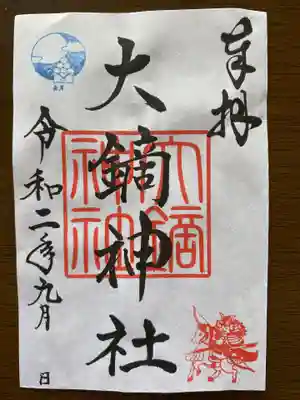 奉拝
大鏑神社
大鏑神社
令和二年九月 日